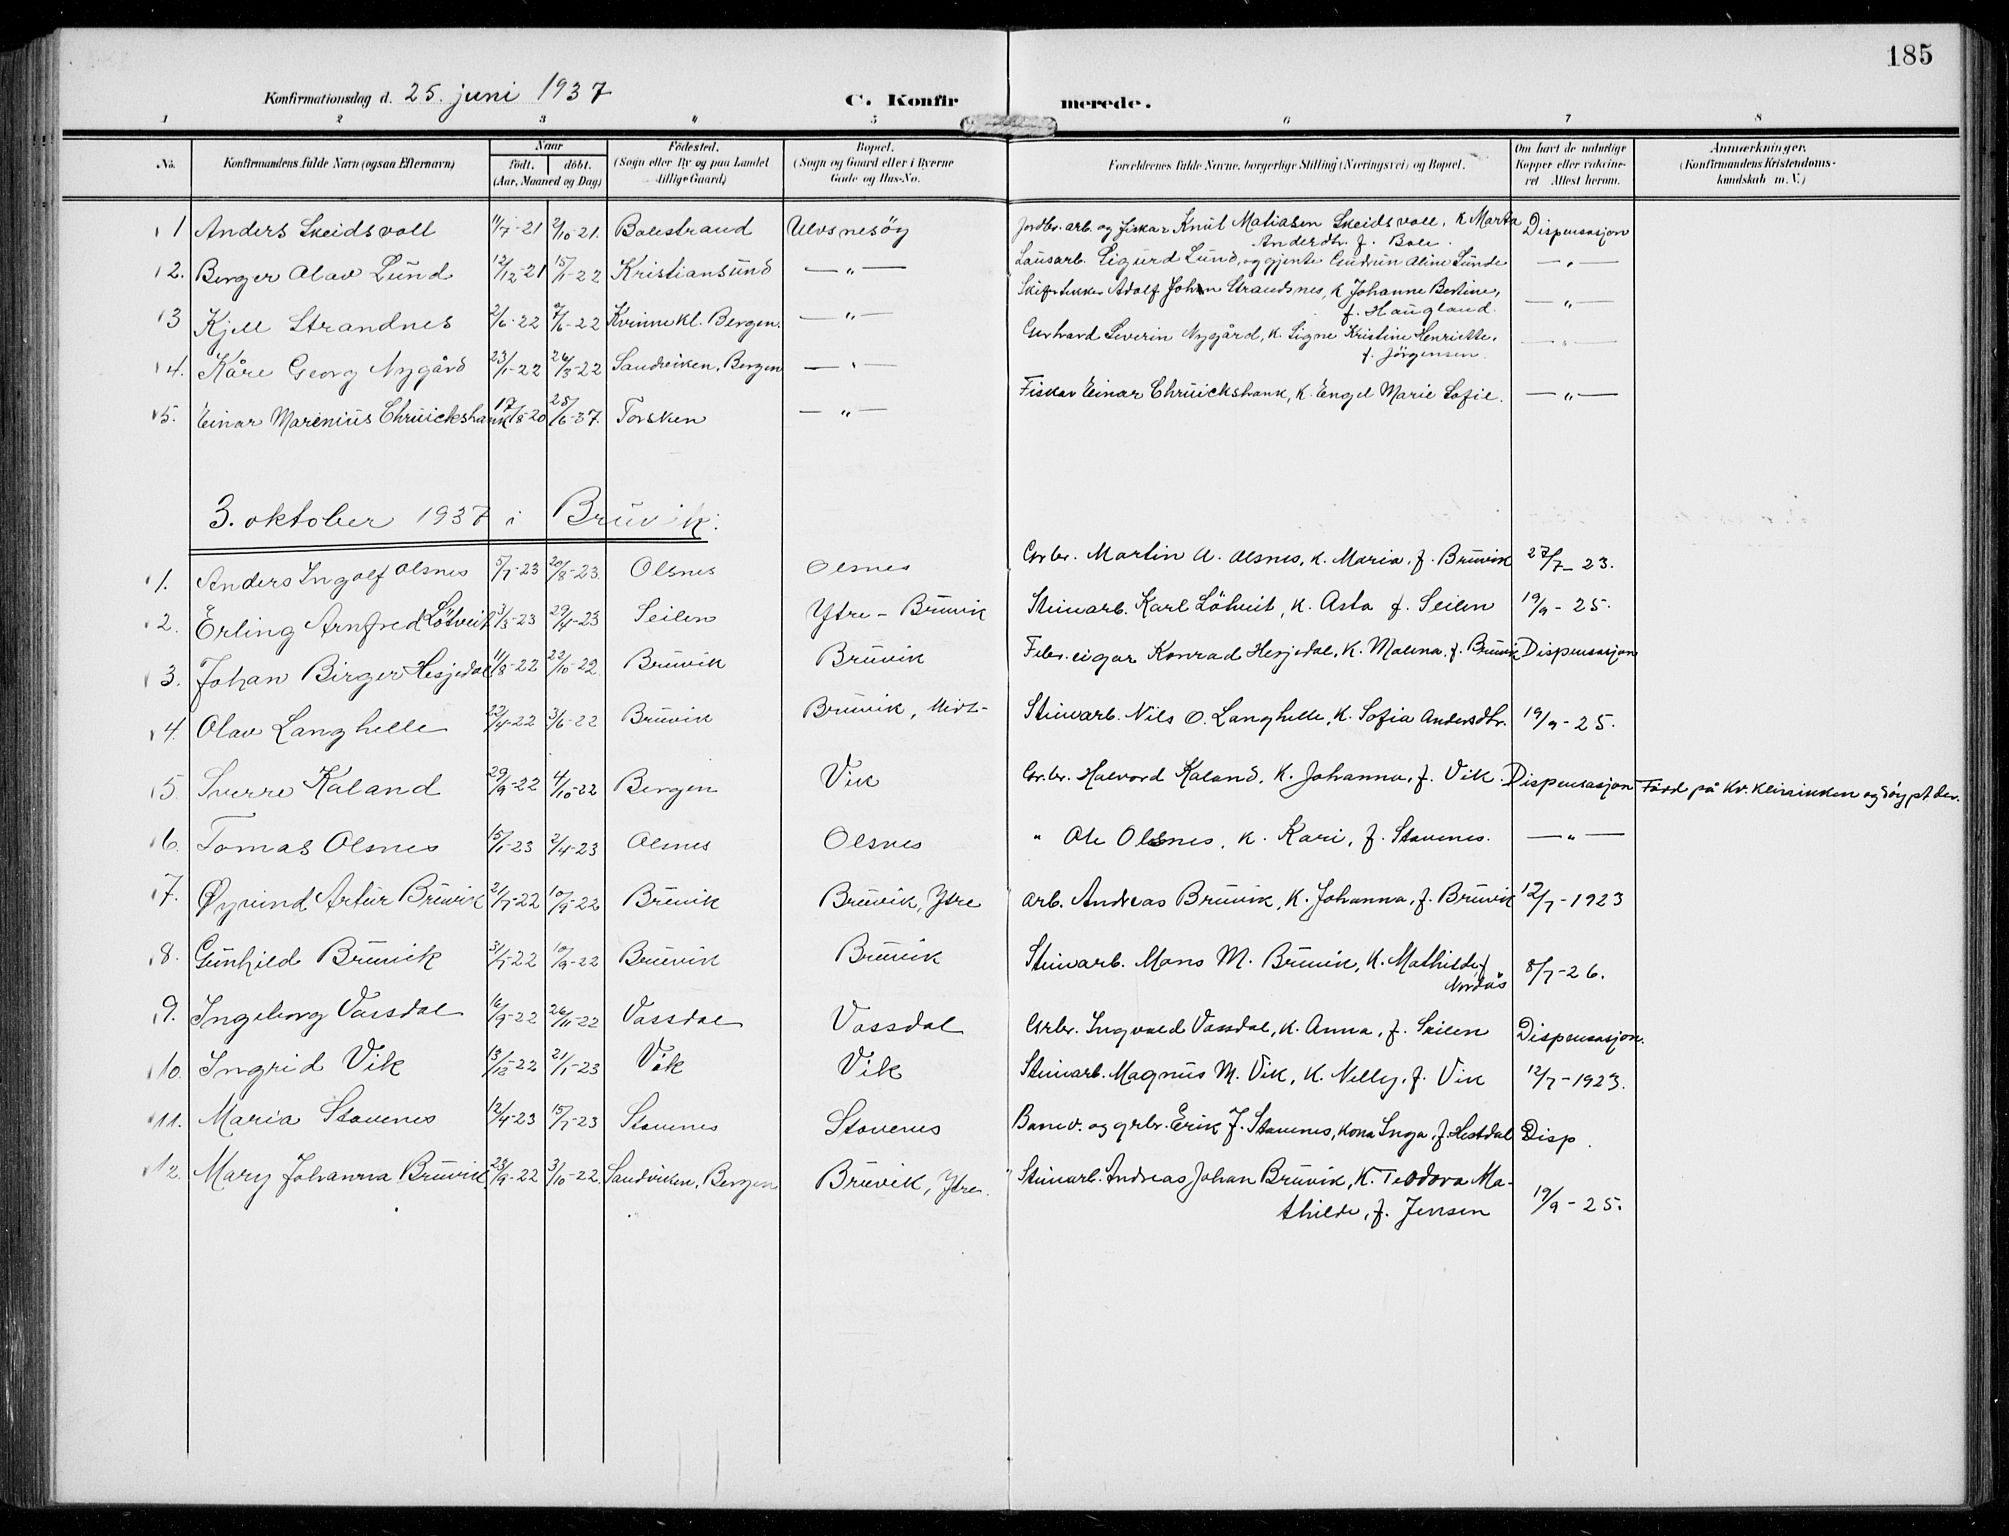 185
Konfirmationsdag d. 25. juni 1937 C. Konfirmerede.
1 2 3 4 5 6 7 8
No. Konfirmandens fulde Navn (ogsaa Efternavn) Naar født. døbt. (Aar, Maaned og Dag) Fødested. (Sogn eller By og paa Landet tillige Gaard) Bopæl. (Sogn og Gaard eller i Byerne Gade og Hus-No. Forældrenes fulde Navne, borgerlige Stilling (Næringsvei) og Bopæl. Om havt de naturlige Kopper eller vaccineret Attest herom. Anmærkninger. (Konfirmandens Kristendomskundskab m. V.)
1 Anders Skeidsvoll 11/7-21 2/10-21. Balestrand Ulvsnesöy Jordbr. arb. og fiskar Knut Matiasen Skeidsvoll, K Marta Andersdtr. f. Bale. Dispensasjon
2. Berger Olav Lund 12/12-21 15/1-22 Kristiansund — " — Lausarb. Sigurd Lund, og gjente Gudrun Aline Lunde — " —
3 Kjell Strandnes 2/6-22 7/6-22 Kvinnekl. Bergen. — " — Skifertekker Adolf Johan Strandsnes, k Johanne Bertine, f. Haugland. — " —
4. Kåre Georg Nygård 23/1-22 26/3-22 Sandviken, Bergen — " — Gerhard Severin Nygård, k. Signe Kristine Henriette, f. Jörgensen. — " —
5. Einar Marenius Chruickshank 17/8-20 25/6-37. Torsken — " — Fiskar Einar Chruickshank, K. Engel Marie Sofie. — " —
3. oktober 1937 i Bruvik:
1. Anders Ingolf Olsnes 5/7-23 20/8-23. Olsnes Olsnes Grbr. Martin A. Olsnes, k. Maria, f. Bruvik 27/7-23.
2. Erling Arnfred Lötveit 3/3-23 29/4-23 Seilen Ytre-Bruvik Steinarb. Karl Lötveit, k. Asta f. Seilen 19/9-25.
3. Johan Birger Hesjedal 11/8-22 22/10-22. Bruvik Bruvik Febr. eigar Konrad Hesjedal, K. Malena, f. Bruvik Dispensasjon
4. Olav Langhelle 22/4-22 3/6-22 Bruvik Bruvik, Midt- Steinarb. Nils O. Langhelle, K. Sofia Andersdtr. 19/9-25.
5. Sverre Kaland 29/9-22 4/10-22 Bergen Vik Grbr. Halvord Kaland, K. Johanna, f. Vik. Dispensasjon Född på Kv. klinikken og döypt der.
6. Tomas Olsnes 15/1-23 2/4-23 Olsnes Olsnes " Ole Olsnes, k. Kari, f. Stavenes. — " —
7. Øyvind Artur Bruvik 21/7-22 10/9-22 Bruvik Bruvik, Ytre Arb. Andreas Bruvik, K. Johanna, f. Bruvik 12/7-1923
8. Gunhild Bruvik 31/7-22 10/9-22 Bruvik Bruvik Steinarb. Mons M. Bruvik, K. Mathilde, f Nordås 8/7-26.
9. Ingeborg Vassdal 16/9-22 26/11-22 Vassdal Vassdal Grbr. Ingvald Vassdal, k. Anna, f. Seilen Dispensasjon.
10. Ingrid Vik 13/12-22 21/1-23 Vik Vik Steinarb. Magnus M. Vik, K. Nelly, f. Vik 12/7-1923.
11. Maria Stavenes 12/4-23 15/7-23 Stavenes Stavenes Banev. og grbr. Erik J. Stavenes, kona Inga, f. Hestdal Disp.
12. Mary Johanna Bruvik 23/9-22 3/10-22. Sandviken, Bergen Bruvik, Ytre. Steinarb. Andreas Johan Bruvik, K. Teodora Mathilde, f. Jensen 19/9-25.